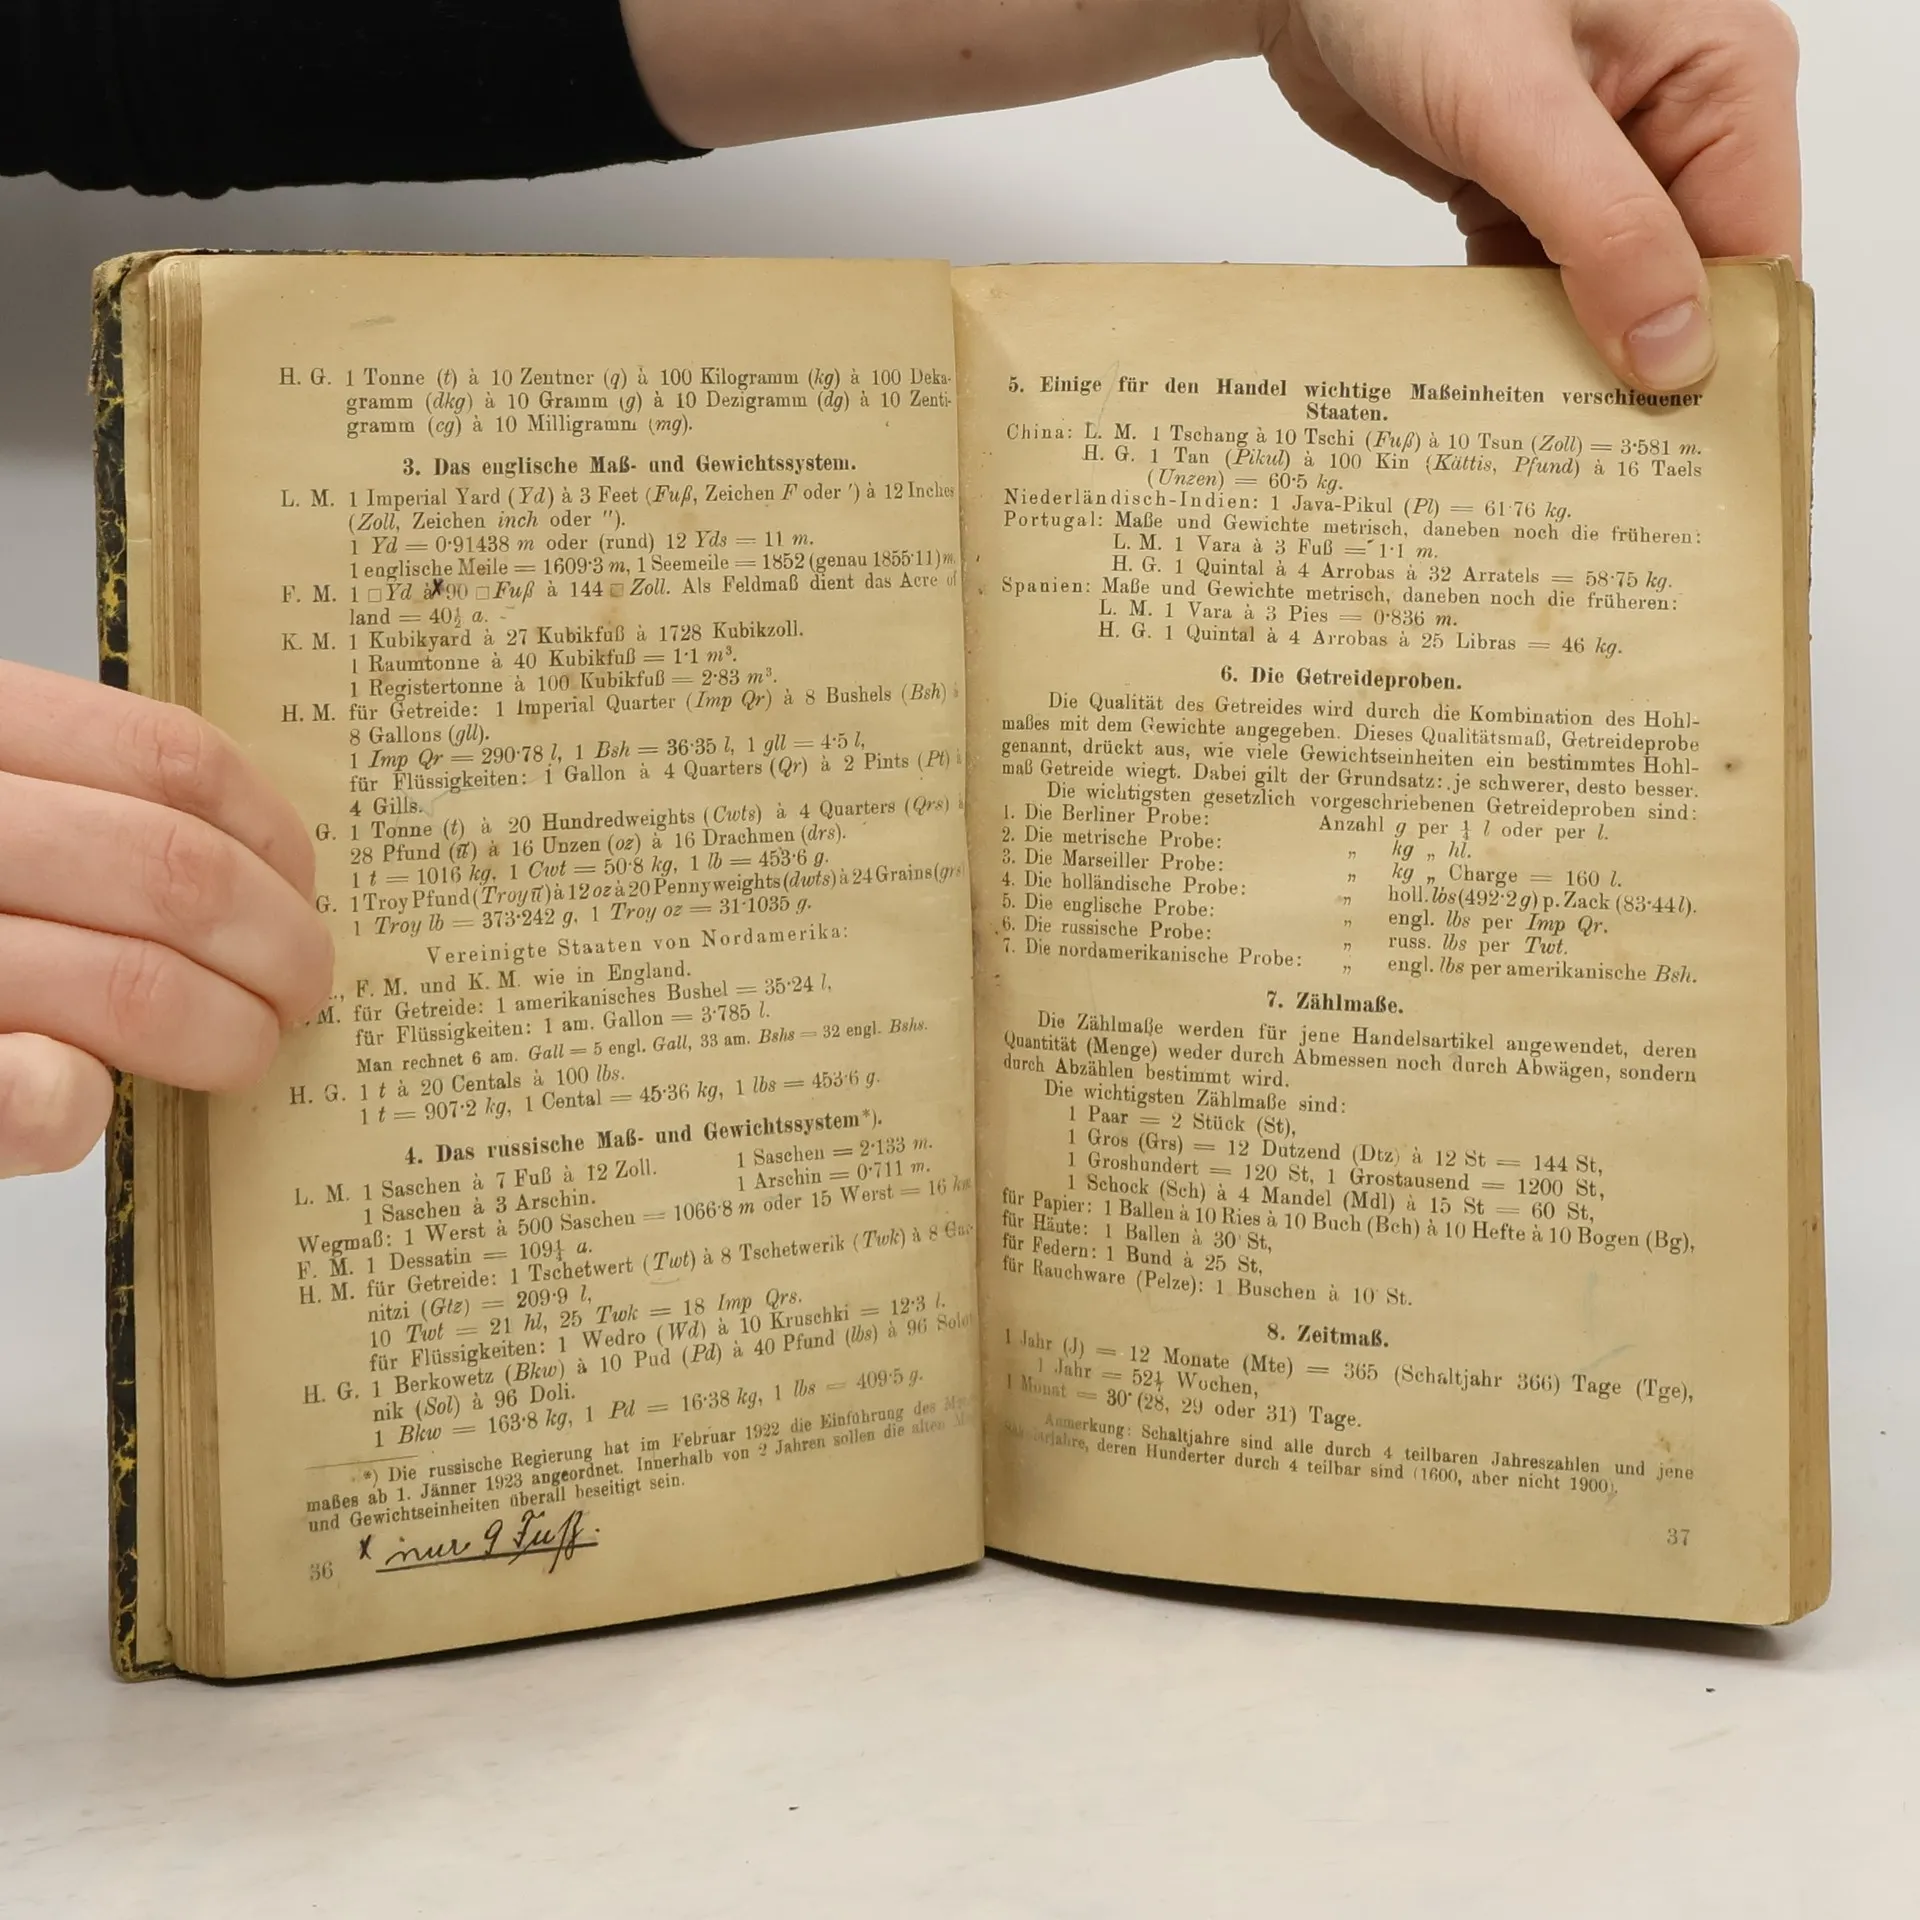 H. G. 1 Tonne (t) à 10 Zentner (q) à 100 Kilogramm (kg) à 100 Deka-
gramm (dkg) à 10 Gramm (g) à 10 Dezigramm (dg) à 10 Zenti-
gramm (cg) à 10 Milligramm (mg).
3. Das englische Maß- und Gewichtssystem.
L. M. 1 Imperial Yard (Yd) à 3 Feet (Fuß, Zeichen F oder ') à 12 Inches
(Zoll, Zeichen inch oder ").
1 Yd = 0·91438 m oder (rund) 12 Yds = 11 m.
1 englische Meile = 1609·3 m, 1 Seemeile = 1852 (genau 1855·11) m.
F. M. 1 □ Yd à x 90 □ Fuß à 144 □ Zoll. Als Feldmaß dient das Acre of
land = 40½ a.
K. M. 1 Kubikyard à 27 Kubikfuß à 1728 Kubikzoll.
1 Raumtonne à 40 Kubikfuß = 1·1 m³.
1 Registertonne à 100 Kubikfuß = 2·83 m³.
H. M. für Getreide: 1 Imperial Quarter (Imp Qr) à 8 Bushels (Bsh) à
8 Gallons (gll).
1 Imp Qr = 290·78 l, 1 Bsh = 36·35 l, 1 gll = 4·5 l,
für Flüssigkeiten: 1 Gallon à 4 Quarters (Qr) à 2 Pints (Pt) à
4 Gills.
G. 1 Tonne (t) à 20 Hundredweights (Cwts) à 4 Quarters (Qrs) à
28 Pfund (℔) à 16 Unzen (oz) à 16 Drachmen (drs).
1 t = 1016 kg, 1 Cwt = 50·8 kg, 1 lb = 453·6 g.
G. 1 Troy Pfund (Troy ℔) à 12 oz à 20 Pennyweights (dwts) à 24 Grains (grs)
1 Troy lb = 373·242 g, 1 Troy oz = 31·1035 g.
Vereinigte Staaten von Nordamerika:
F. M. und K. M. wie in England.
M. für Getreide: 1 amerikanisches Bushel = 35·24 l,
für Flüssigkeiten: 1 am. Gallon = 3·785 l.
Man rechnet 6 am. Gall = 5 engl. Gall, 33 am. Bshs = 32 engl. Bshs.
H. G. 1 t à 20 Centals à 100 lbs.
1 t = 907·2 kg, 1 Cental = 45·36 kg, 1 lbs = 453·6 g.
4. Das russische Maß- und Gewichtssystem*).
L. M. 1 Saschen à 7 Fuß à 12 Zoll. 1 Saschen = 2·133 m.
1 Saschen à 3 Arschin. 1 Arschin = 0·711 m.
Wegmaß: 1 Werst à 500 Saschen = 1066·8 m oder 15 Werst = 16 km
F. M. 1 Dessatin = 109¼ a.
H. M. für Getreide: 1 Tschetwert (Twt) à 8 Tschetwerik (Twk) à 8 Gar-
nitzi (Gtz) = 209·9 l,
10 Twt = 21 hl, 25 Twk = 18 Imp Qrs.
für Flüssigkeiten: 1 Wedro (Wd) à 10 Kruschki = 12·3 l.
H. G. 1 Berkowetz (Bkw) à 10 Pud (Pd) à 40 Pfund (lbs) à 96 Solot
nik (Sol) à 96 Doli.
1 Bkw = 163·8 kg, 1 Pd = 16·38 kg, 1 lbs = 409·5 g.
*) Die russische Regierung hat im Februar 1922 die Einführung des
maßes ab 1. Jänner 1923 angeordnet. Innerhalb von 2 Jahren sollen die alten
und Gewichtseinheiten überall beseitigt sein.
x nur 9 Fuß.
36
5. Einige für den Handel wichtige Maßeinheiten verschiedener
Staaten.
China: L. M. 1 Tschang à 10 Tschi (Fuß) à 10 Tsun (Zoll) = 3·581 m.
H. G. 1 Tan (Pikul) à 100 Kin (Kättis, Pfund) à 16 Taels
(Unzen) = 60·5 kg.
Niederländisch-Indien: 1 Java-Pikul (Pl) = 61·76 kg.
Portugal: Maße und Gewichte metrisch, daneben noch die früheren:
L. M. 1 Vara à 3 Fuß = 1·1 m.
H. G. 1 Quintal à 4 Arrobas à 32 Arratels = 58·75 kg.
Spanien: Maße und Gewichte metrisch, daneben noch die früheren:
L. M. 1 Vara à 3 Pies = 0·836 m.
H. G. 1 Quintal à 4 Arrobas à 25 Libras = 46 kg.
6. Die Getreideproben.
Die Qualität des Getreides wird durch die Kombination des Hohl-
maßes mit dem Gewichte angegeben. Dieses Qualitätsmaß, Getreideprobe
genannt, drückt aus, wie viele Gewichtseinheiten ein bestimmtes Hohl-
maß Getreide wiegt. Dabei gilt der Grundsatz: je schwerer, desto besser.
Die wichtigsten gesetzlich vorgeschriebenen Getreideproben sind:
1. Die Berliner Probe: Anzahl g per ¼ l oder per l.
2. Die metrische Probe: „ kg „ hl.
3. Die Marseiller Probe: „ kg „ Charge = 160 l.
4. Die holländische Probe: „ holl. lbs (492·2 g) p. Zack (83·44 l).
5. Die englische Probe: „ engl. lbs per Imp Qr.
6. Die russische Probe: „ russ. lbs per Twt.
7. Die nordamerikanische Probe: „ engl. lbs per amerikanische Bsh.
7. Zählmaße.
Die Zählmaße werden für jene Handelsartikel angewendet, deren
Quantität (Menge) weder durch Abmessen noch durch Abwägen, sondern
durch Abzählen bestimmt wird.
Die wichtigsten Zählmaße sind:
1 Paar = 2 Stück (St),
1 Gros (Grs) = 12 Dutzend (Dtz) à 12 St = 144 St,
1 Groshundert = 120 St, 1 Grostausend = 1200 St,
1 Schock (Sch) à 4 Mandel (Mdl) à 15 St = 60 St,
für Papier: 1 Ballen à 10 Ries à 10 Buch (Bch) à 10 Hefte à 10 Bogen (Bg),
für Häute: 1 Ballen à 30 St,
für Federn: 1 Bund à 25 St,
für Rauchware (Pelze): 1 Buschen à 10 St.
8. Zeitmaß.
1 Jahr (J) = 12 Monate (Mte) = 365 (Schaltjahr 366) Tage (Tge),
1 Jahr = 52¼ Wochen,
1 Monat = 30 (28, 29 oder 31) Tage.
Anmerkung: Schaltjahre sind alle durch 4 teilbaren Jahreszahlen und jene
deren Hunderter durch 4 teilbar sind (1600, aber nicht 1900).
37